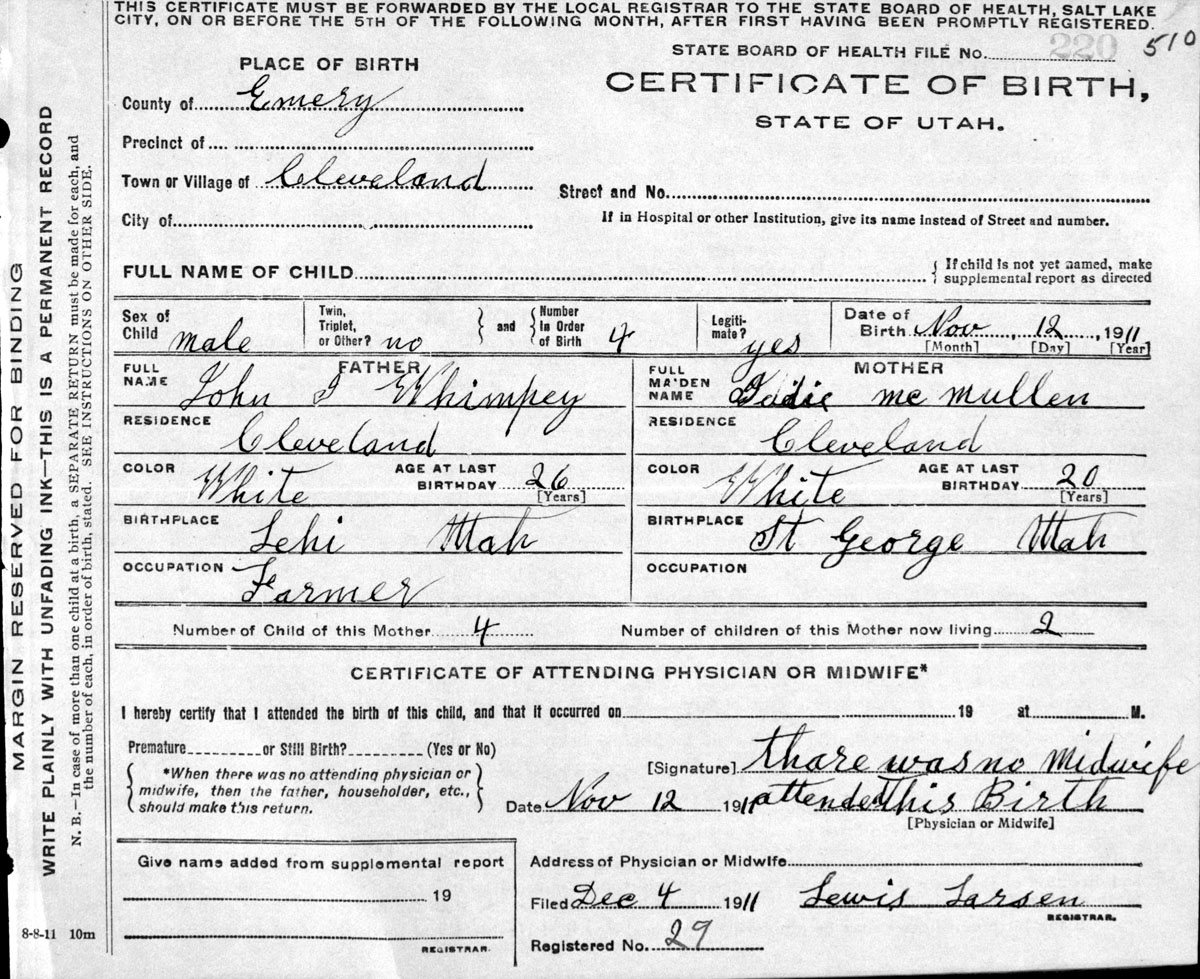 THIS CERTIFICATE MUST BE FORWARDED BY THE LOCAL REGISTRAR TO THE STATE BOARD OF HEALTH, SALT LAKE
CITY, ON OR BEFORE THE 5TH OF THE FOLLOWING MONTH, AFTER FIRST HAVING BEEN PROMPTLY REGISTERED.
STATE BOARD OF HEALTH FILE No. 220 510
PLACE OF BIRTH
CERTIFICATE OF BIRTH,
STATE OF UTAH.
County of Emery
Precinct of
Town or Village of Cleveland
Street and No.
City of
If in Hospital or other Institution, give its name instead of Street and number.
FULL NAME OF CHILD
{ If child is not yet named, make
supplemental report as directed
Sex of Child male
Twin, Triplet, or Other? no } and { Number In Order of Birth 4
Legiti-mate? yes
Date of Birth Nov, 12, 1911
[Month] [Day] [Year]
FATHER
MOTHER
FULL NAME John I Whimpey
FULL MAIDEN NAME mc mullen
RESIDENCE Cleveland
RESIDENCE Cleveland
COLOR White AGE AT LAST BIRTHDAY 26 [Years]
COLOR White AGE AT LAST BIRTHDAY 20 [Years]
BIRTHPLACE Lehi Utah
BIRTHPLACE St George Utah
OCCUPATION Farmer
OCCUPATION
Number of Child of this Mother 4 Number of children of this Mother now living 2
CERTIFICATE OF ATTENDING PHYSICIAN OR MIDWIFE*
I hereby certify that I attended the birth of this child, and that it occurred on 19 at M.
Premature or Still Birth? (Yes or No)
{ *When there was no attending physician or
midwife, then the father, householder, etc.,
should make this return. }
[Signature] thare was no Midwife
Date Nov 12 1911 attended This Birth
[Physician or Midwife]
Give name added from supplemental report
19
REGISTRAR.
Address of Physician or Midwife
Filed Dec 4 1911 Lewis Larsen
REGISTRAR.
Registered No. 29
8-8-11 10m
MARGIN RESERVED FOR BINDING
WRITE PLAINLY WITH UNFADING INK—THIS IS A PERMANENT RECORD
N. B.—In case of more than one child at a birth, a SEPARATE RETURN must be made for each, and
the number of each, in order of birth, stated. SEE INSTRUCTIONS ON OTHER SIDE.